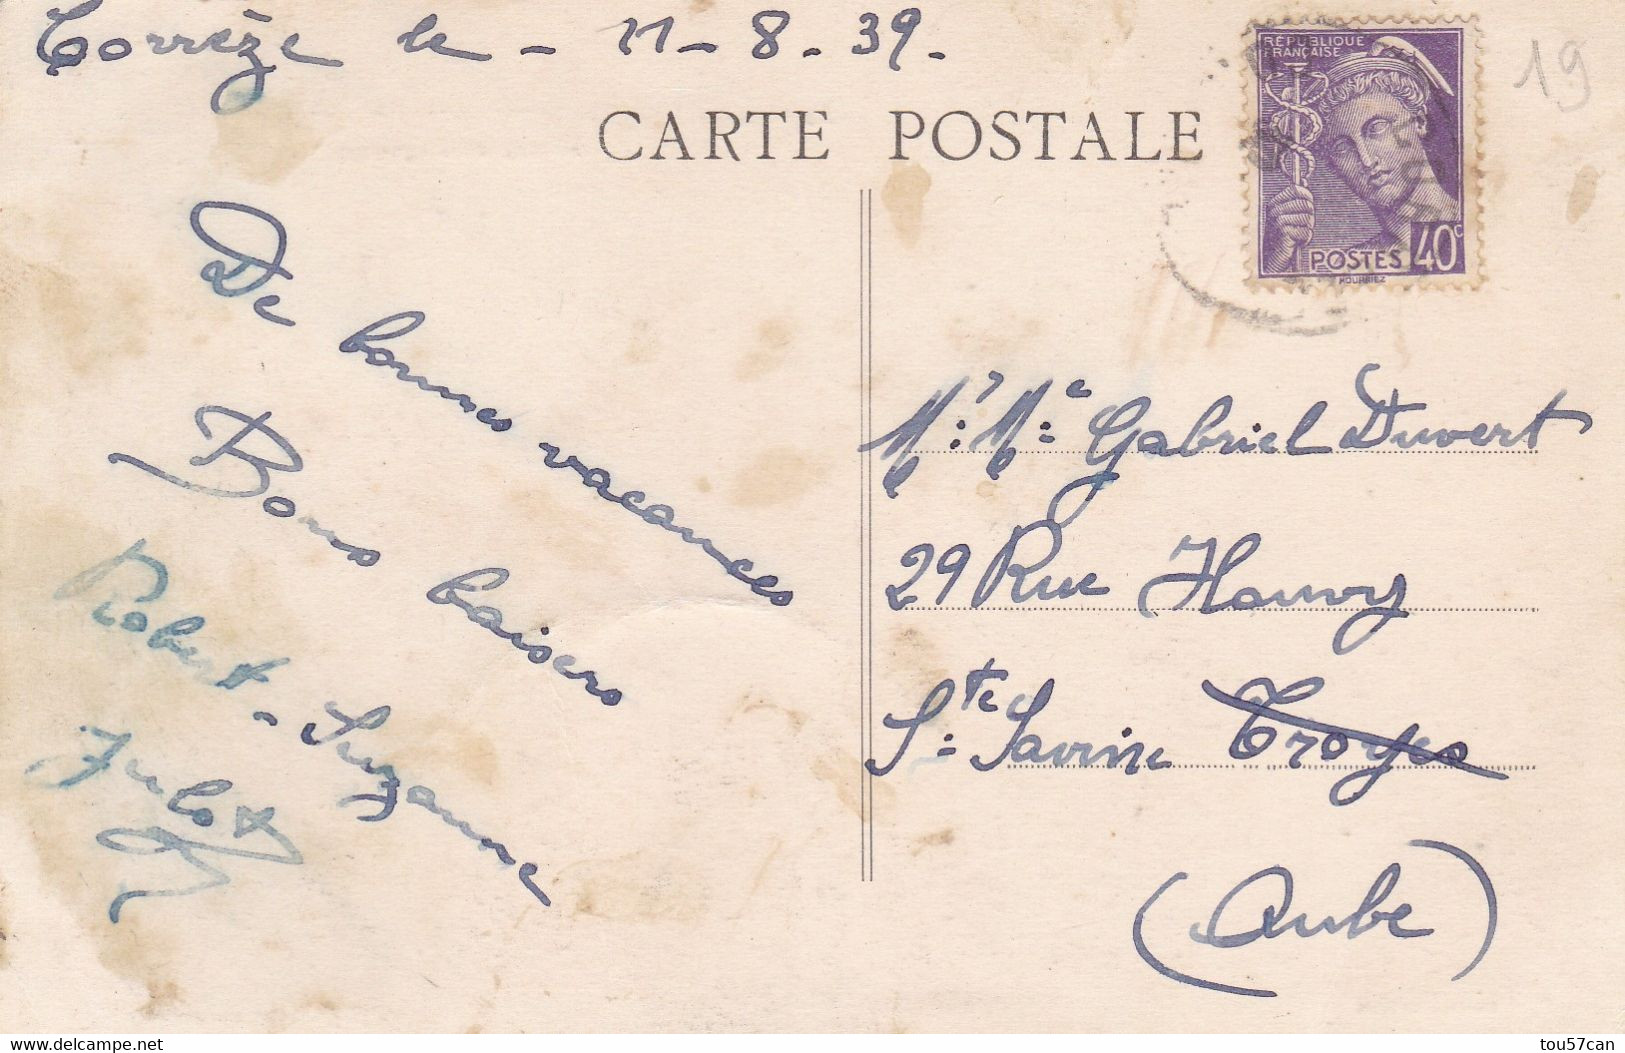 Corrèze le - 11 - 8 - 39 -
19
RÉPUBLIQUE
FRANÇAISE
POSTES 40c
CARTE POSTALE
De bonnes vacances
Bons baisers
Robert - Suzanne
Mr: Me Gabriel Duvert
29 Rue
Ste Savine Troyes
(Aube)
www.delcampe.net
tou57can